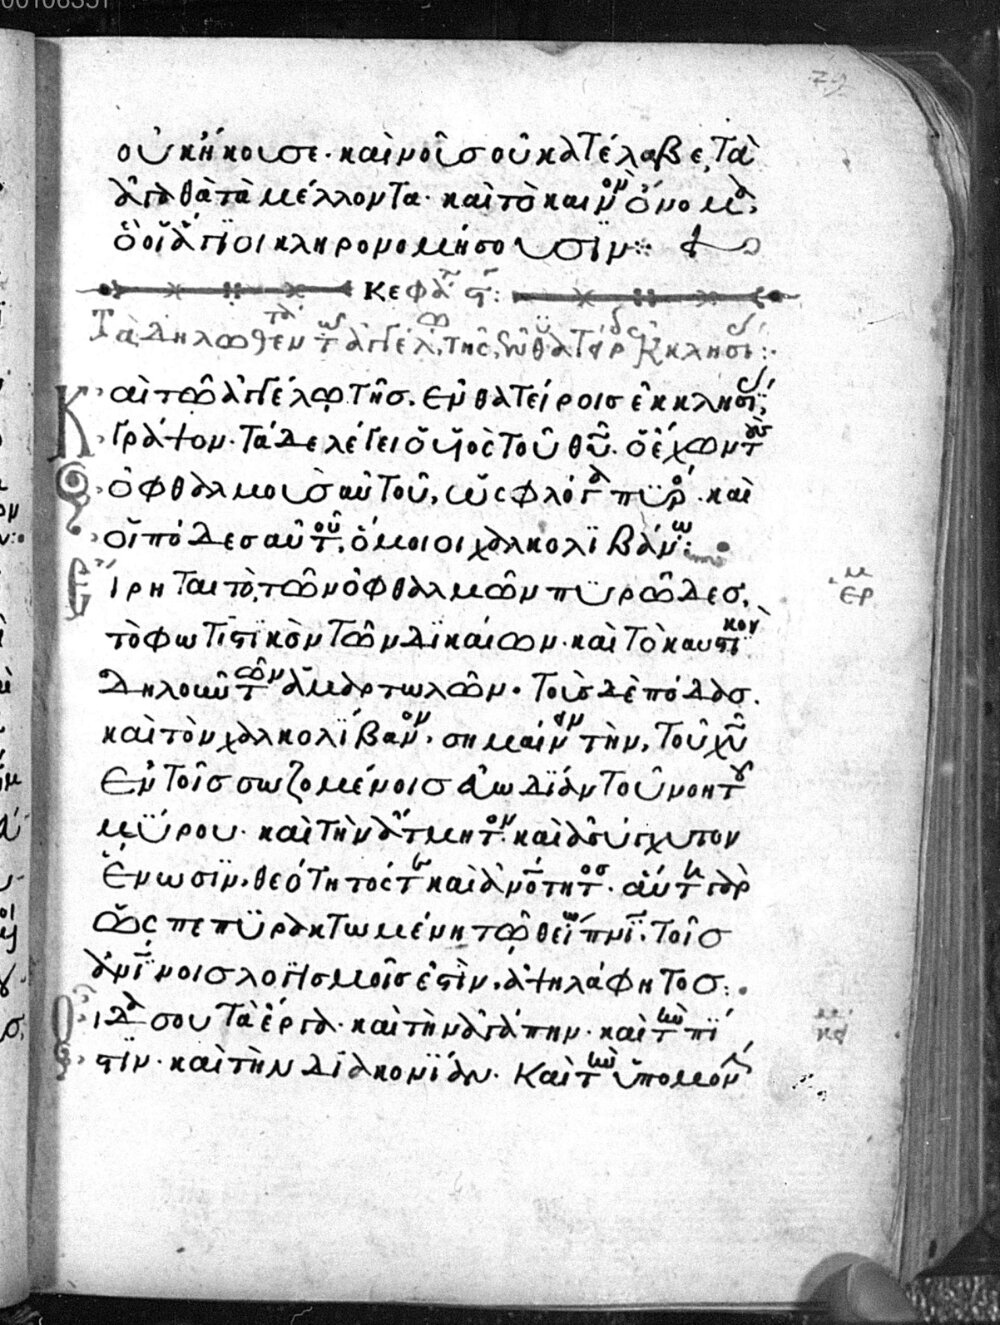 οὐκ ἤκουσε· καὶ νοῦσ οὐ κατέλαβε, τὰ
ἀγαθὰ τὰ μέλλοντα· καὶ τὸ καινὸν ὄνομα,
ὃ οἱ ἅγϊοι κληρονομήσουσϊν:·
κεφαλ ϛ:
Τὰ δηλωθέντα τῶ ἀγγέλω, τῆς ἐν θυατείροις ἐκκλησίας:·
Καὶ τῶ ἀγγέλω τῆσ, ἐν θυατείροισ ἐκκλησίασ,
γράψον· τάδε λέγει ὁ υἱὸς τοῦ θῦ· ὁ ἔχων τοὺσ
ὀφθαλμοὺσ αὐτοῦ, ὡς φλόγα πϋρός· καὶ
οἱ πόδεσ αὐτοῦ, ὅμοιοι χαλκολϊβάνω:
Εἴρηται τὸ, τῶν ὀφθαλμῶν πϋρῶδεσ,
τὸ φωτιστϊκὸν τῶν δϊκαίων· καὶ τὸ καυστϊκὸν
δηλοῦν τῶν ἁμαρτωλῶν· τοὺσ δὲ πόδασ
καὶ τὸν χαλκολϊβανον, σημαίνειν τὴν, τοῦ χῦ
ἐν τοῖσ σωζομένοισ εὐωδϊάν τοῦ νοητοῦ
μϋρου· καὶ τὴν ἄτμητον καὶ ἀσύγχυτον
ἕνωσϊν, θεότητός τε καὶ ἀνότητος· αὕτη γὰρ
ὡς πεπϋρακτωμένη τῶ θείω πνϊ, τοῖσ
ἀνϊνοισ λογϊσμοῖσ ἐστὶν, ἀψηλάφητοσ:·
Οἶδά σου τὰ ἔργα· καὶ τὴν ἀγάπην· καὶ τὴν πί
στϊν· καὶ τὴν δϊακονϊάν· καὶ τὴν ὑπομονὴν